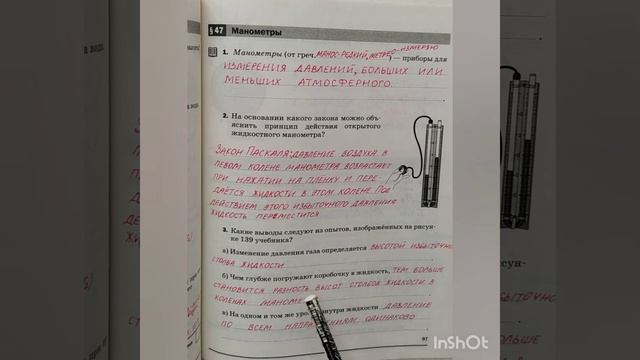 § 47 Манометры
1. Манометры (от греч. МАНОС-РЕДКИЙ, МЕТРЕО-ИЗМЕРЯЮ) — приборы для
ИЗМЕРЕНИЯ ДАВЛЕНИЙ, БОЛЬШИХ ИЛИ
МЕНЬШИХ АТМОСФЕРНОГО.
2. На основании какого закона можно объ-
яснить принцип действия открытого
жидкостного манометра?
ЗАКОН ПАСКАЛЯ: ДАВЛЕНИЕ ВОЗДУХА В
ЛЕВОМ КОЛЕНЕ МАНОМЕТРА ВОЗРАСТАЕТ
ПРИ НАЖАТИИ НА ПЛЁНКУ И ПЕРЕ-
ДАЁТСЯ ЖИДКОСТИ В ЭТОМ КОЛЕНЕ. ПОД
ДЕЙСТВИЕМ ЭТОГО ИЗБЫТОЧНОГО ДАВЛЕНИЯ
ЖИДКОСТЬ ПЕРЕМЕСТИТСЯ
3. Какие выводы следуют из опытов, изображённых на рисун-
ке 139 учебника?
а) Изменение давления газа определяется ВЫСОТОЙ ИЗБЫТОЧНО
СТОЛБА ЖИДКОСТИ
б) Чем глубже погружают коробочку в жидкость, ТЕМ БОЛЬШЕ
СТАНОВИТСЯ РАЗНОСТЬ ВЫСОТ СТОЛБОВ ЖИДКОСТИ В
КОЛЕНАХ МАНОМЕ
в) На одном и том же уро внутри жидкости ДАВЛЕНИЕ
ПО ВСЕМ НАПРАВЛЕНИЯМ ОДИНАКОВО
91
InShOt